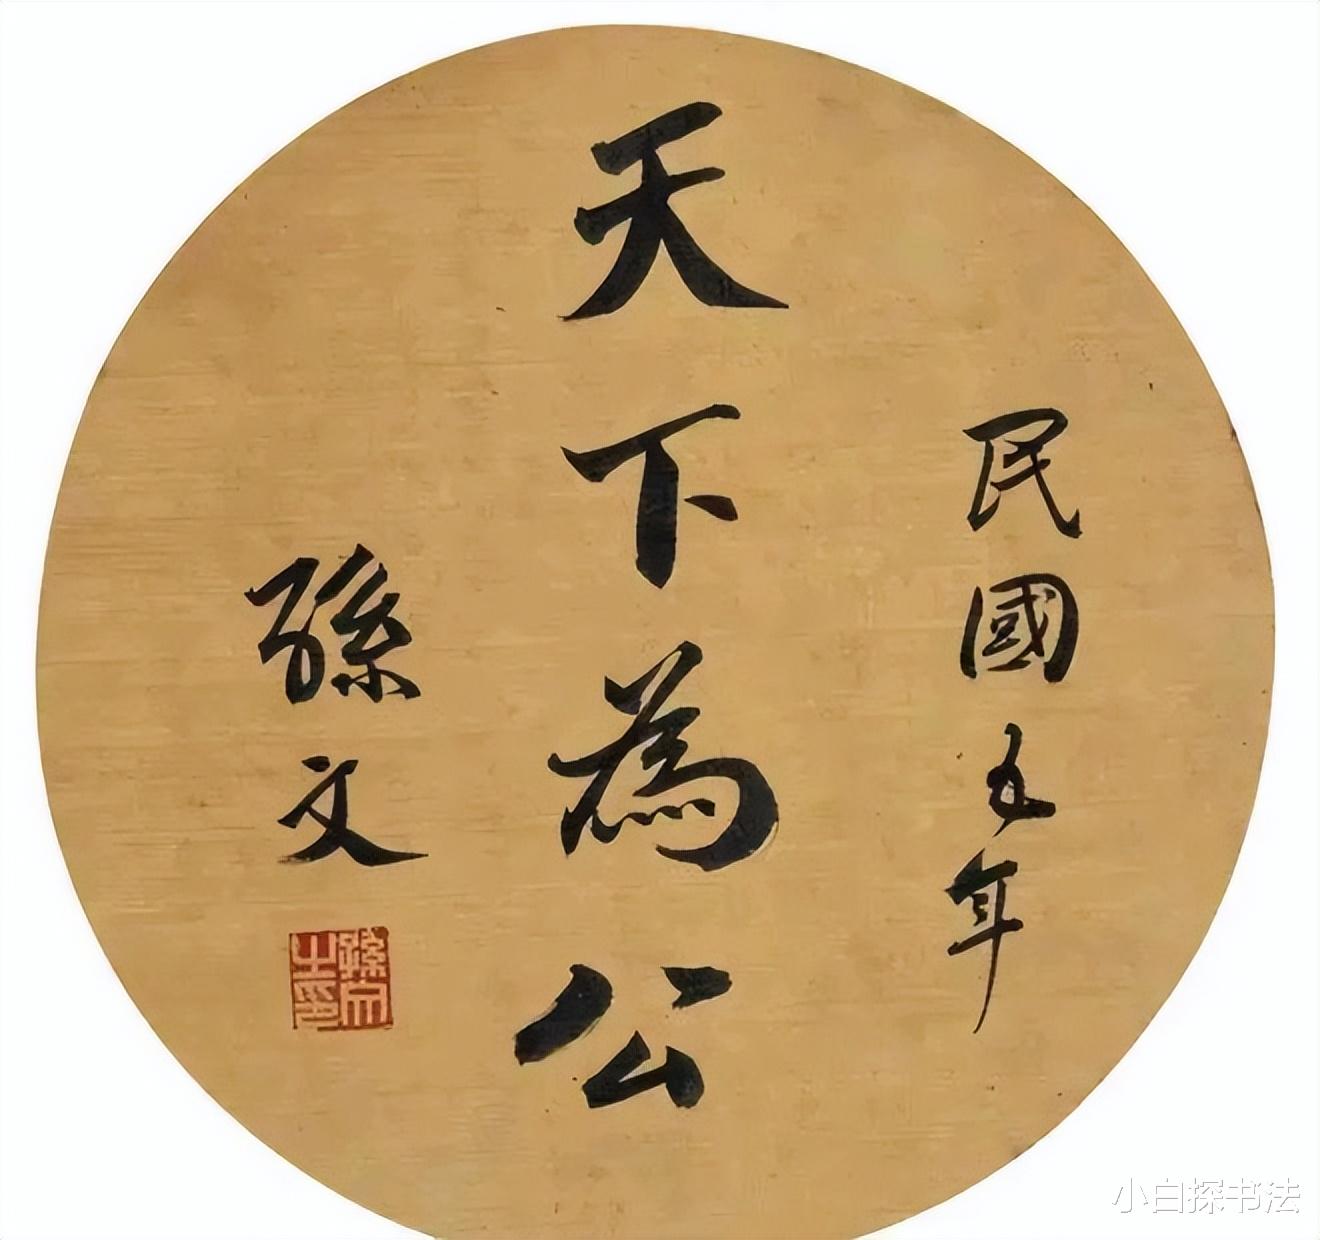 民國五年
天下為公
孫文
孫文之印
小白探书法